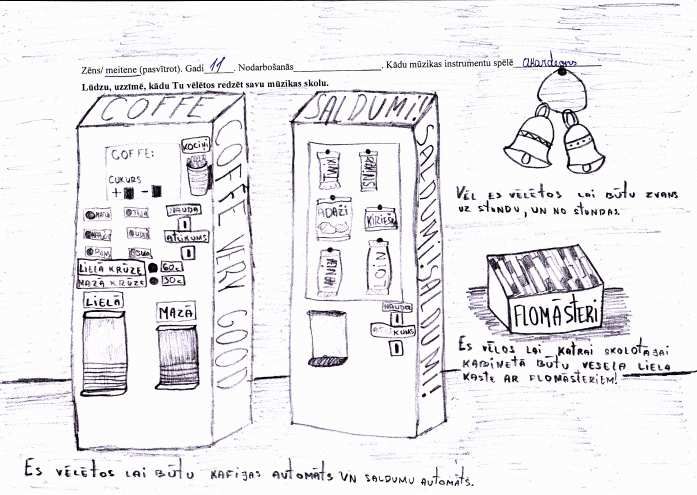 Zēns/ meitene (pasvītrot). Gadi 11. Nodarbošanās. Kādu mūzikas instrumentu spēlē akordeons
Lūdzu, uzzīmē, kādu Tu vēlētos redzēt savu mūzikas skolu.
COFFE
COFFE VERY GOOD
KOCIŅI
COFFE:
CUKURS
+ -
NAUDA
ATLIKUMS
LIELA KRŪZE 60c
MAZA KRŪZE 30c
LIELĀ
MAZĀ
SALDUMI!!
SALDUMI!SALDUMI!
TWIX
ADAŽI
NAUDA
ATLIKUMS
VĒL ES VĒLĒTOS LAI BŪTU ZVANS
UZ STUNDU, UN NO STUNDAS.
FLOMĀSTERI
ES VĒLOS LAI KATRAI SKOLOTĀJAI
KABINETĀ BŪTU VESELA LIELA
KASTE AR FLOMĀSTERIEM!
ES VĒLĒTOS LAI BŪTU KAFIJAS AUTOMĀTS UN SALDUMU AUTOMĀTS.